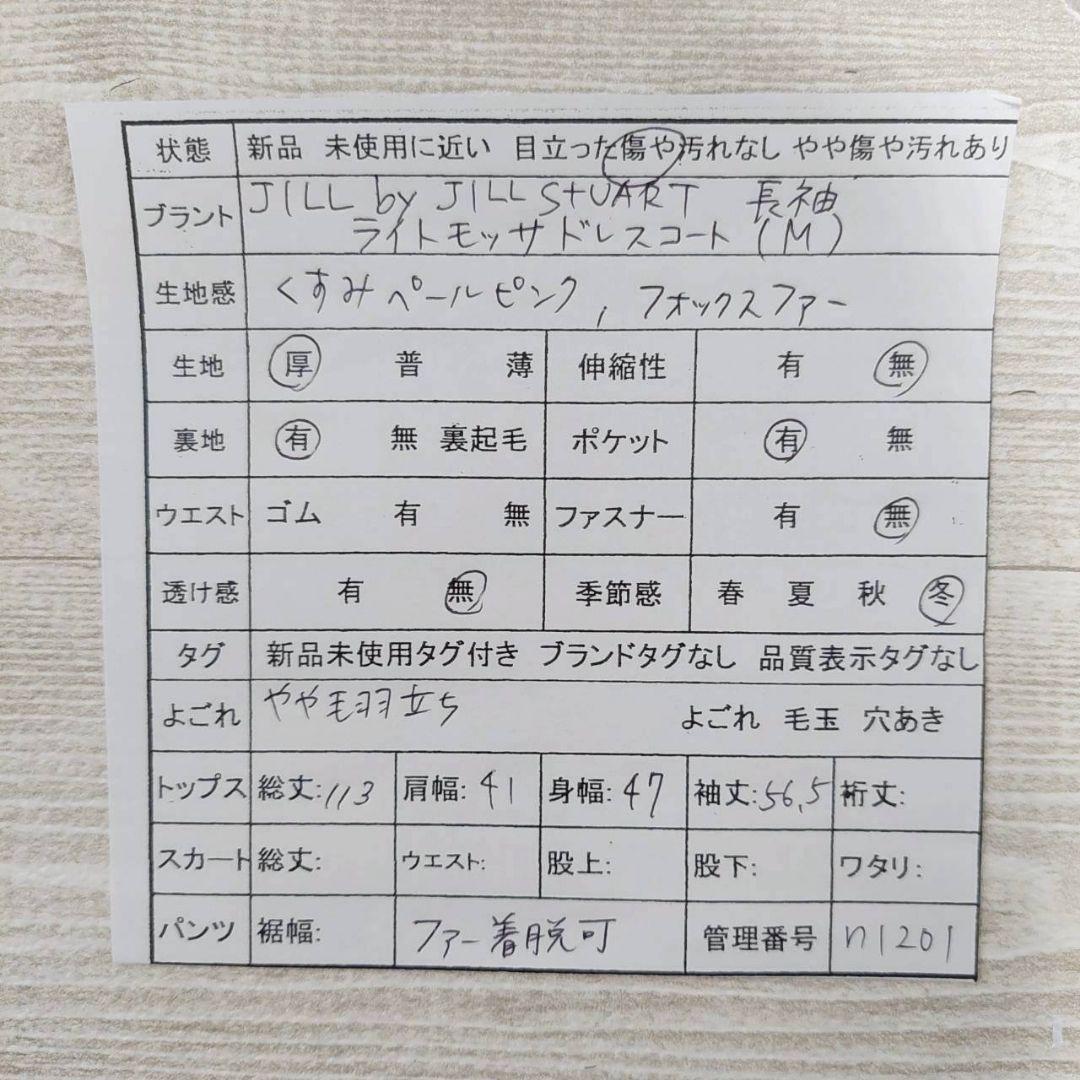 状態 新品 未使用に近い 目立った傷や汚れなし やや傷や汚れあり
ブラント JILL by JILL STUART 長袖
ライトモッサドレスコート(M)
生地感 くすみペールピンク, フォックスファー
生地 厚 普 薄 伸縮性 有 無
裏地 有 無 裏起毛 ポケット 有 無
ウエスト ゴム 有 無 ファスナー 有 無
透け感 有 無 季節感 春 夏 秋 冬
タグ 新品未使用タグ付き ブランドタグなし 品質表示タグなし
よごれ やや毛羽立ち よごれ 毛玉 穴あき
トップス 総丈:113 肩幅:41 身幅:47 袖丈:56,5 裄丈:
スカート 総丈: ウエスト: 股上: 股下: ワタリ:
パンツ 裾幅: ファー着脱可 管理番号 n1201